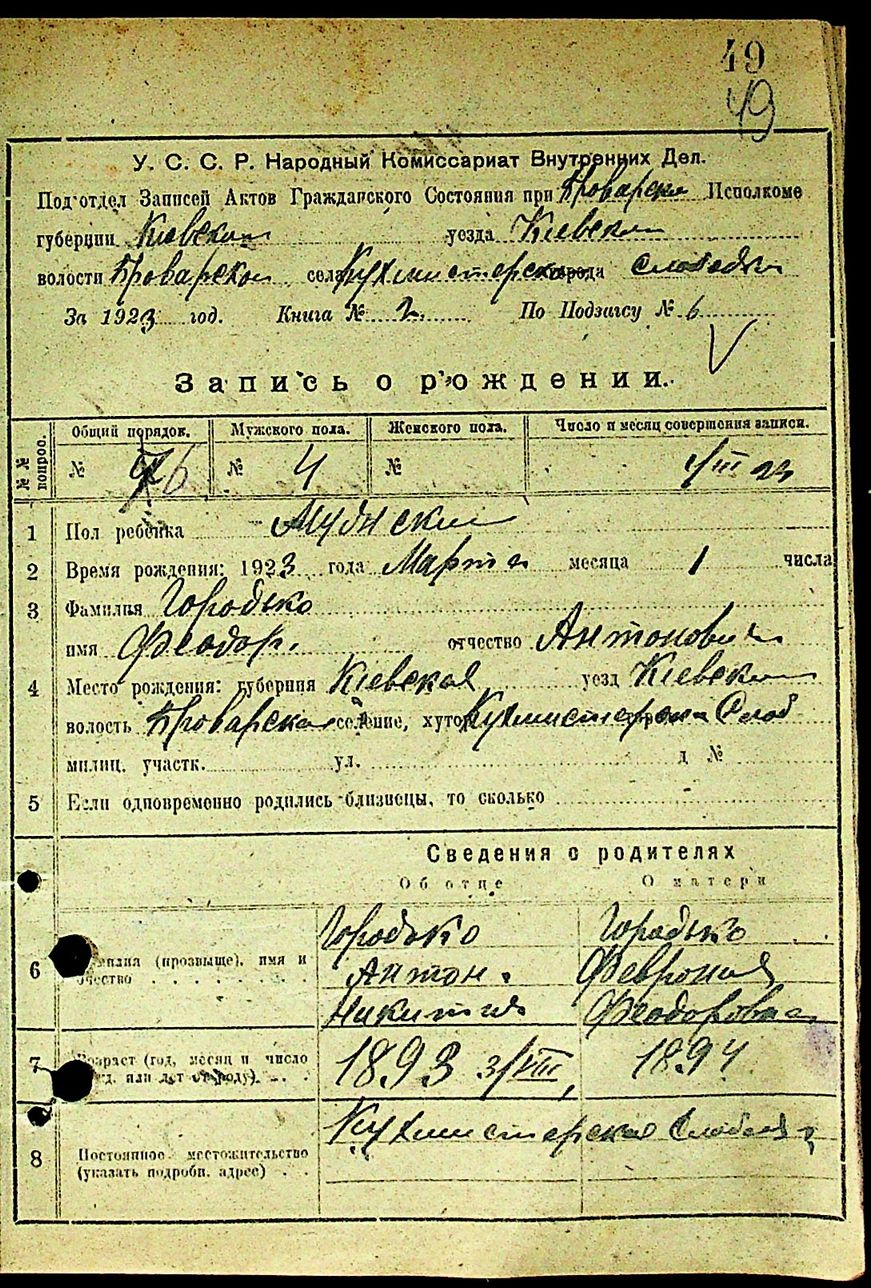 49
49
У. С. С. Р. Народный Комиссариат Внутренних Дел.
Под'отдел Записей Актов Гражданского Состояния при Броварск Исполкоме
губернии Киевской уезда Киевского
волости Броварской села Кухмистерско города слободки
За 1923 год. Книга № 2. По Подзагсу № 6
Запись о рождении.
№№ вопрос. Общий порядок. Мужского пола. Женского пола. Число и месяц совершения записи.
№ 6 № 4 № 4/III 23
1 Пол ребенка Мужской
2 Время рождения: 1923 года Марта месяца 1 числа
3 Фамилия Городько
имя Феодор. отчество Антонович
4 Место рождения: губерния Киевская уезд Киевский
волость Броварская селение, хутор Кухмистерска Слоб
милиц. участк. ул. д №
5 Если одновременно родились близнецы, то сколько
Сведения о родителях
Об отце О матери
Городько Городько
6 Фамилия (прозвыще), имя и Антон. Феврония
отчество Никитич Феодоровна
7 Возраст (год, месяц и число 1893 3/VIII, 1894
рожд. или лет от роду)
Кухмистерская Слободка
8 Постоянное местожительство
(указать подробн. адрес)